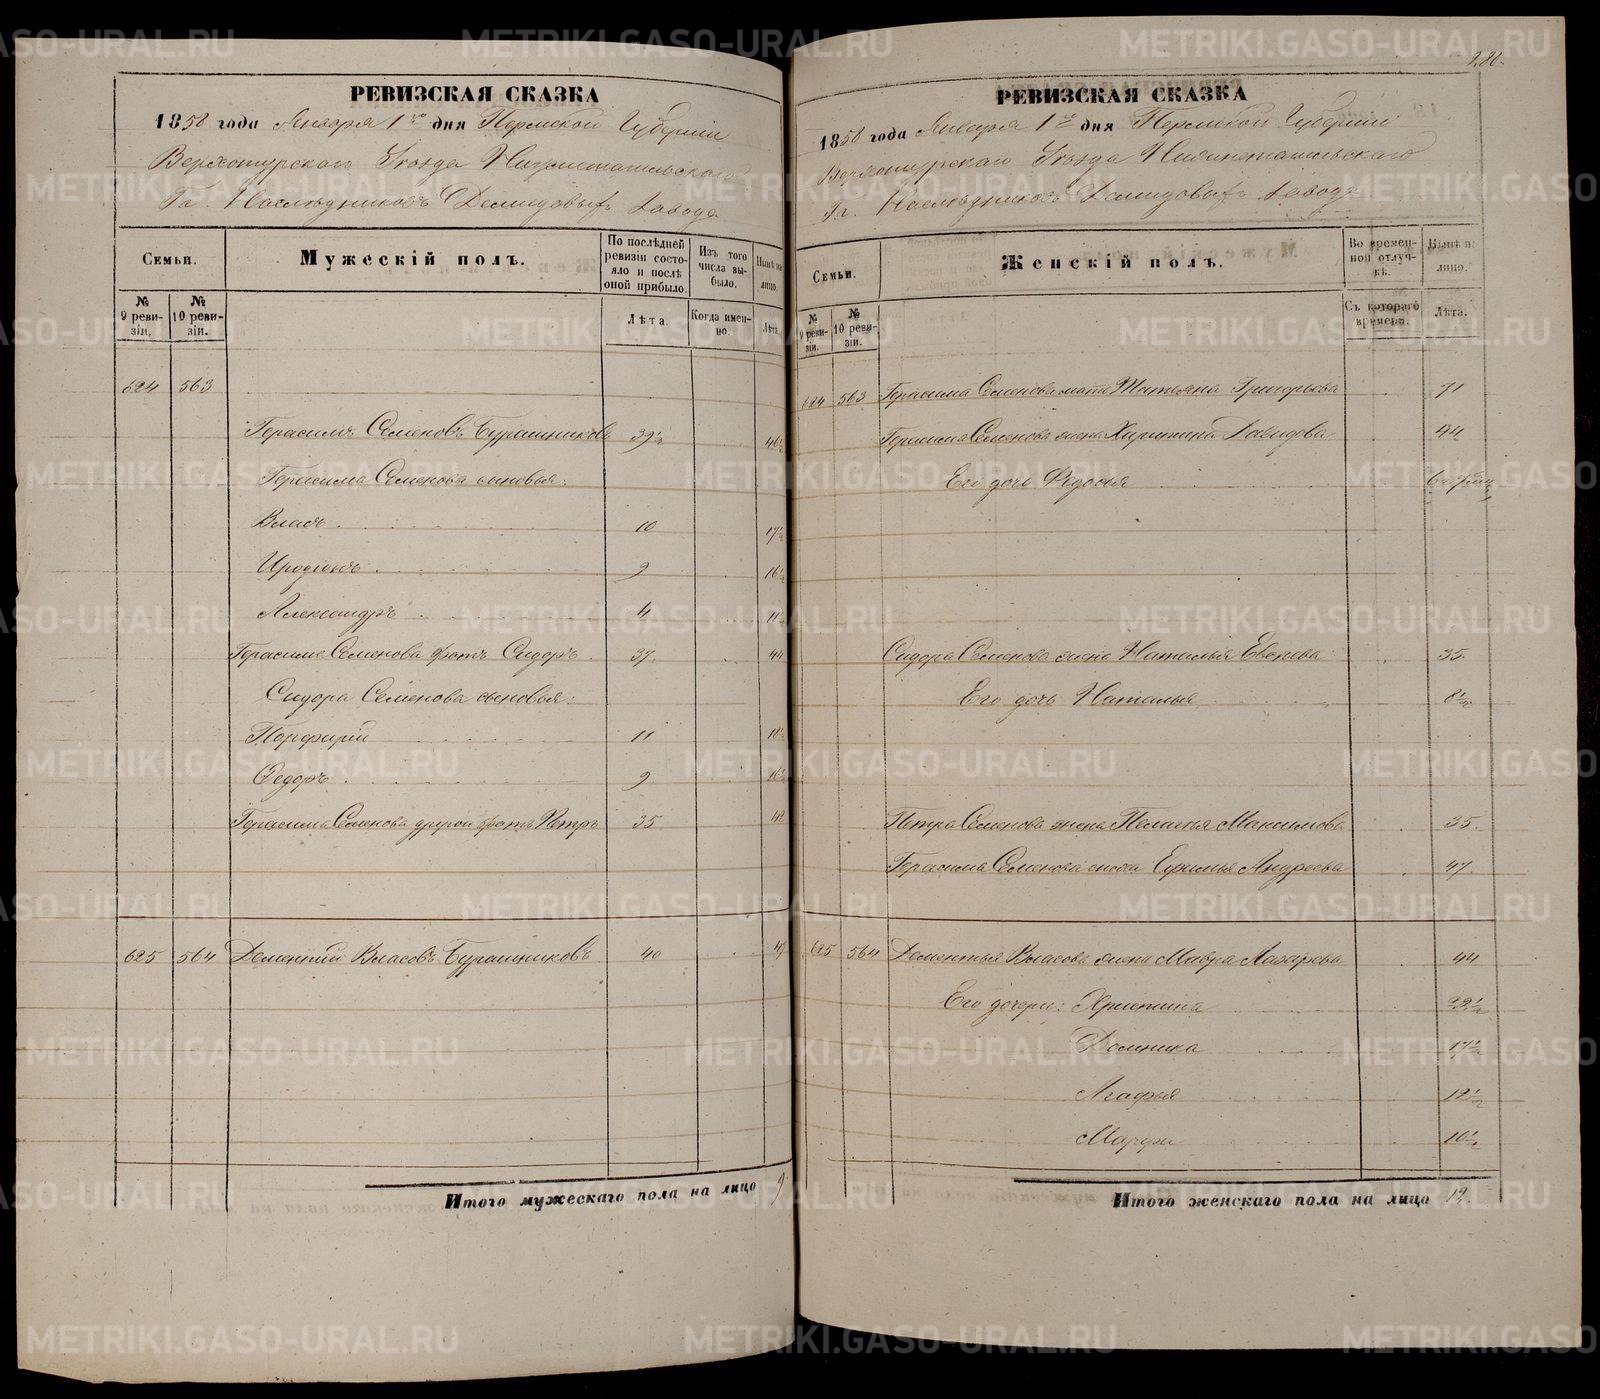 РЕВИЗСКАЯ СКАЗКА
1858 года Января 1го дня Пермской Губернии
Верхотурскаго Уѣзда Нижнетагильскаго
Гг. Наслѣдниковъ Демидовыхъ завода
Семьи.
№ 9 ревизіи.
№ 10 ревизіи.
Мужескій полъ.
По послѣдней ревизіи состояло и послѣ оной прибыло.
Лѣта.
Изъ того числа выбыло.
Когда именно.
Нынѣ на лицо.
Лѣта.
624 563
Герасимъ Семеновъ Бурашниковъ 39½ 46½
Герасима Семенова сыновья:
Власъ 10 17½
Иродіонъ 9 16½
Александръ 4 11½
Герасима Семенова братъ Сидоръ 37 44
Сидора Семенова сыновья:
Порфирій 11 18½
Федоръ 9 16½
Герасима Семенова другой братъ Петръ 35 42
625 564 Дементий Власовъ Бурашниковъ 40 47
Итого мужескаго пола на лицо 9
280.
РЕВИЗСКАЯ СКАЗКА
1858 года Января 1го дня Пермской Губернии
Верхотурскаго Уѣзда Нижнетагильскаго
Гг. Наслѣдниковъ Демидовыхъ завода
Семьи.
№ 9 ревизіи.
№ 10 ревизіи.
Женскій полъ.
Во временной отлучкѣ.
Съ котораго времени.
Нынѣ на лицо.
Лѣта.
624 563 Герасима Семенова мать Татьяна Григорьева 71
Герасима Семенова жена Харитина Давидова 44
Его дочь Федосья
Сидора Семенова жена Наталья Евсеева 35.
Его дочь Наталья 8½
Петра Семенова жена Пелагея Максимова 35.
Герасима Семенова сноха Ефимья Андреева 47.
625 564 Дементья Власова жена Мавра Лазарева 44
Его дочери: Христина 22½
Домника 17½
Агафья 12½
Марфа 10½
Итого женскаго пола на лицо 12.
METRIKI.GASO-URAL.RU